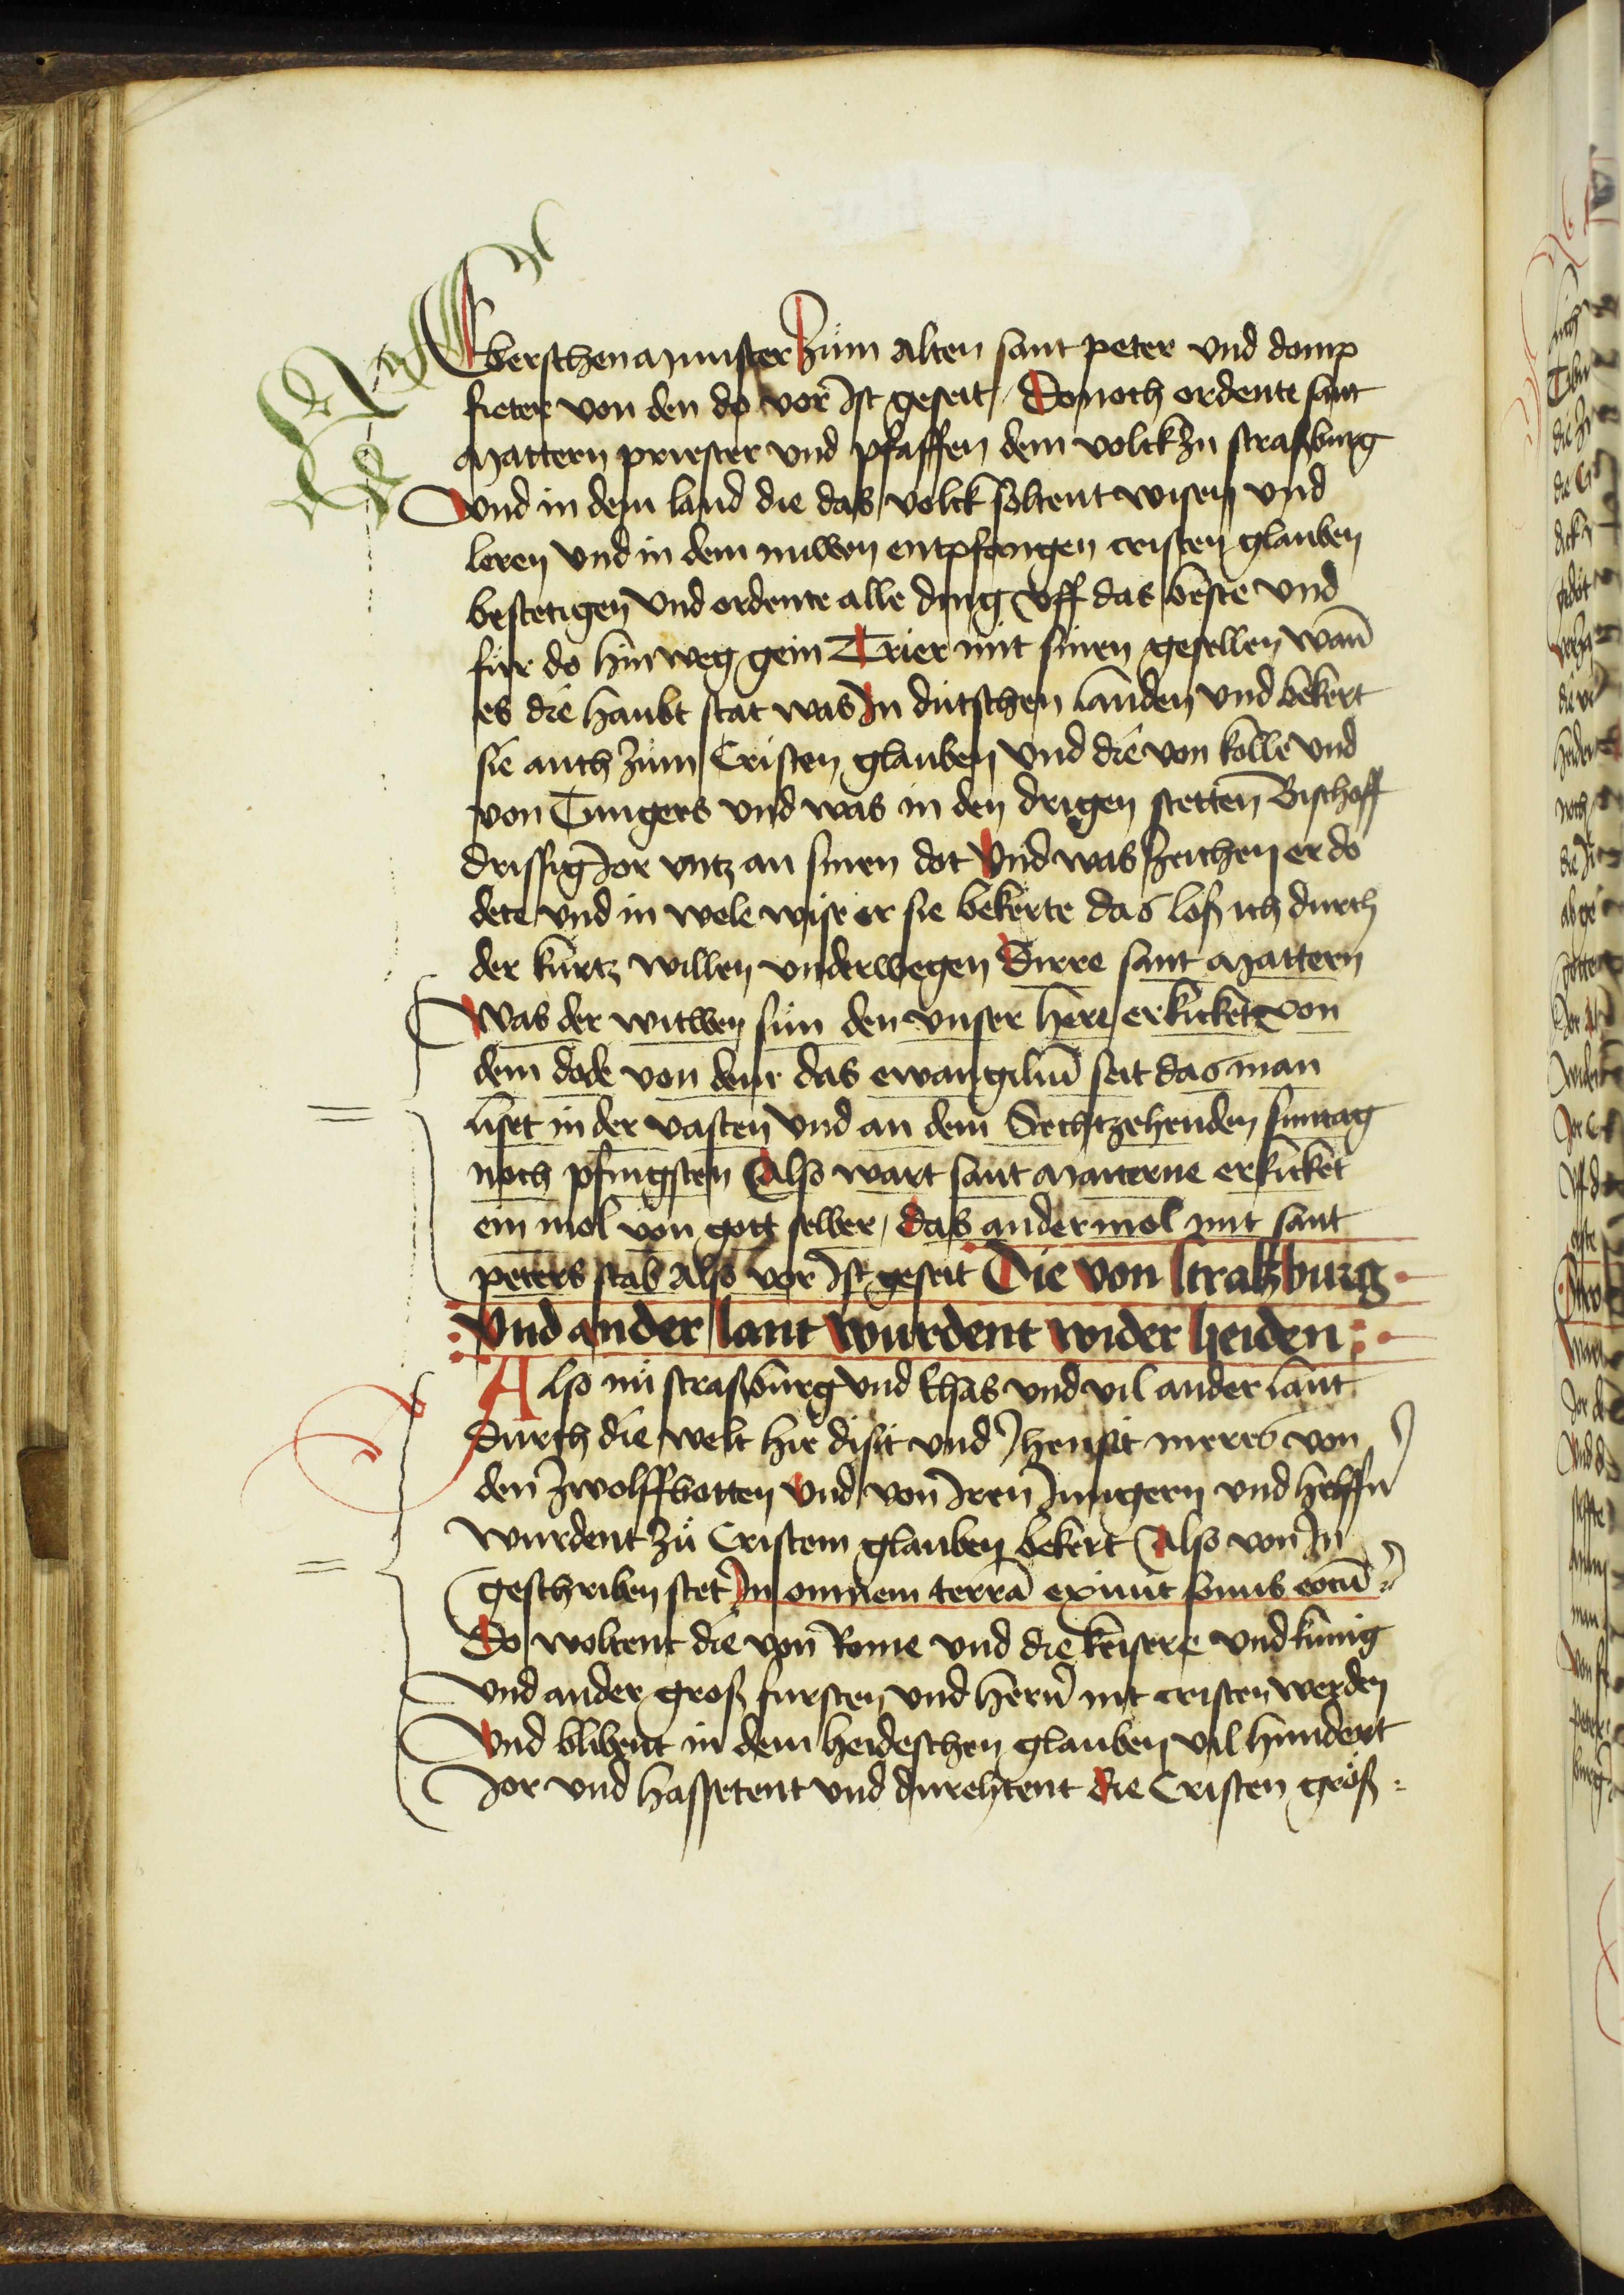 Eberschenmunster Zům alten sant peter vnd domp
fieter von den do vor Ist geseit / Donoch ordente sant
Mattern priester vnd pfaffen dem volck zu straßburg
Vnd in dem land die das volck soltent wisen vnd
leren vnd in dem nuwen entpfangen cristen glauben
bestetigen vnd ordente alle ding vff das beste vnd
für do hinweg gein Trier mit sinen gesellen wan̄
es die haubt stat was In dutschen landen vnd bekert
sie auch zům Cristen glauben vnd die von kolle vnd
von Tungers vnd was in den drigen stetten Bischoff
drissig Jor vntz an sinen dot Vnd was zeichen er do
dete vnd in wele wise er sie bekerte das loß ich durch
der kurtz willen vnderwegen Dirre sant Mattern
Was der witwen sün den vnser here erkicket von
dem dode von dem das ewangiliū seit das man
liset in der vasten vnd an dem Sechtzehenden suntag
noch pfingsten Also wart sant Materne erkicket
ein mol von gott selber / das ander mol mit sant
peters stab also vor Ist geseit Die von straßburg
Vnd ander lant wurdent wider heiden
Also nů straßburg vnd Elsas vnd vil ander lant
Durch die welt hie disit vnd Jhensit meres von
den Zwolffbotten Vnd von Iren Jungern vnd helffn̄
wurdent zů Cristem glauben bekert Also von In
geschriben stet In omnem terrā exiuit sonus eorū
Do woltent die von Rome vnd die keisere vnd kunig
vnd ander groß fursten vnd hern̄ nit cristen werden
Vnd blibent in dem heideschen glauben vil hundert
Jor vnd hassetent vnd durehtent die Cristen groß